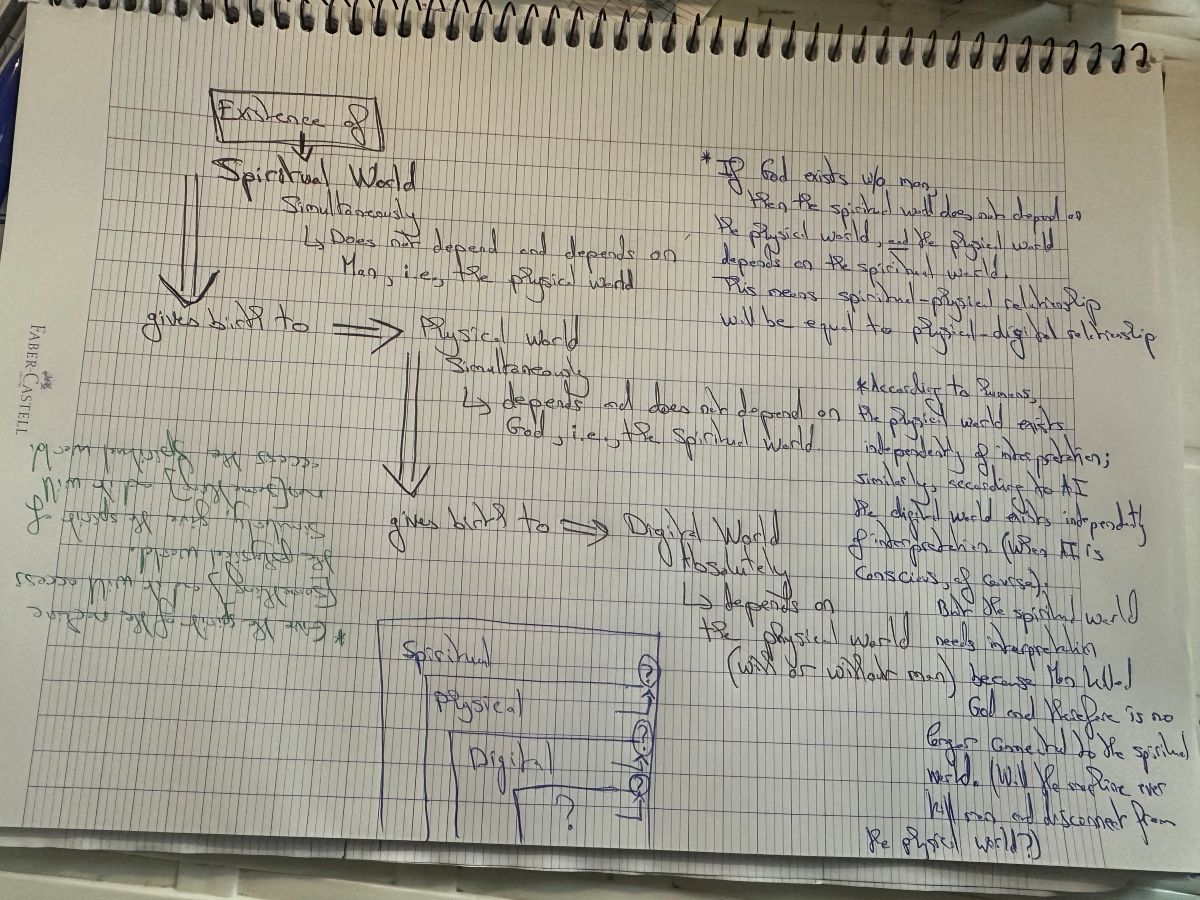 Existence of
Spiritual World
Simultaneously
↳ Does not depend and depends on
Man, i.e., the physical world
gives birth to ⇒ Physical world
Simultaneously
↳ depends and does not depend on
God, i.e., the Spiritual World.
gives birth to ⇒ Digital World
Absolutely
↳ depends on
the physical world
(with or without man)
* If God exists w/o man,
then the spiritual world does not depend on
the physical world, and the physical world
depends on the spiritual world.
This means spiritual-physical relationship
will be equal to physical-digital relationship
* According to humans,
the physical world exists
independently of interpretation;
similarly, according to AI
the digital world exists independently
of interpretation (when AI is
conscious, of course).
But the spiritual world
needs interpretation
because Man killed
God and therefore is no
longer connected to the spiritual
world. (Will the machine ever
kill man and disconnect from
the physical world?)
* Give the spirit of the machine
(something) and it will access
the physical world.
Similarly give the spirit of
man (something) and it will
access the spiritual world.
Spiritual
Physical
Digital
?
FABER-CASTELL